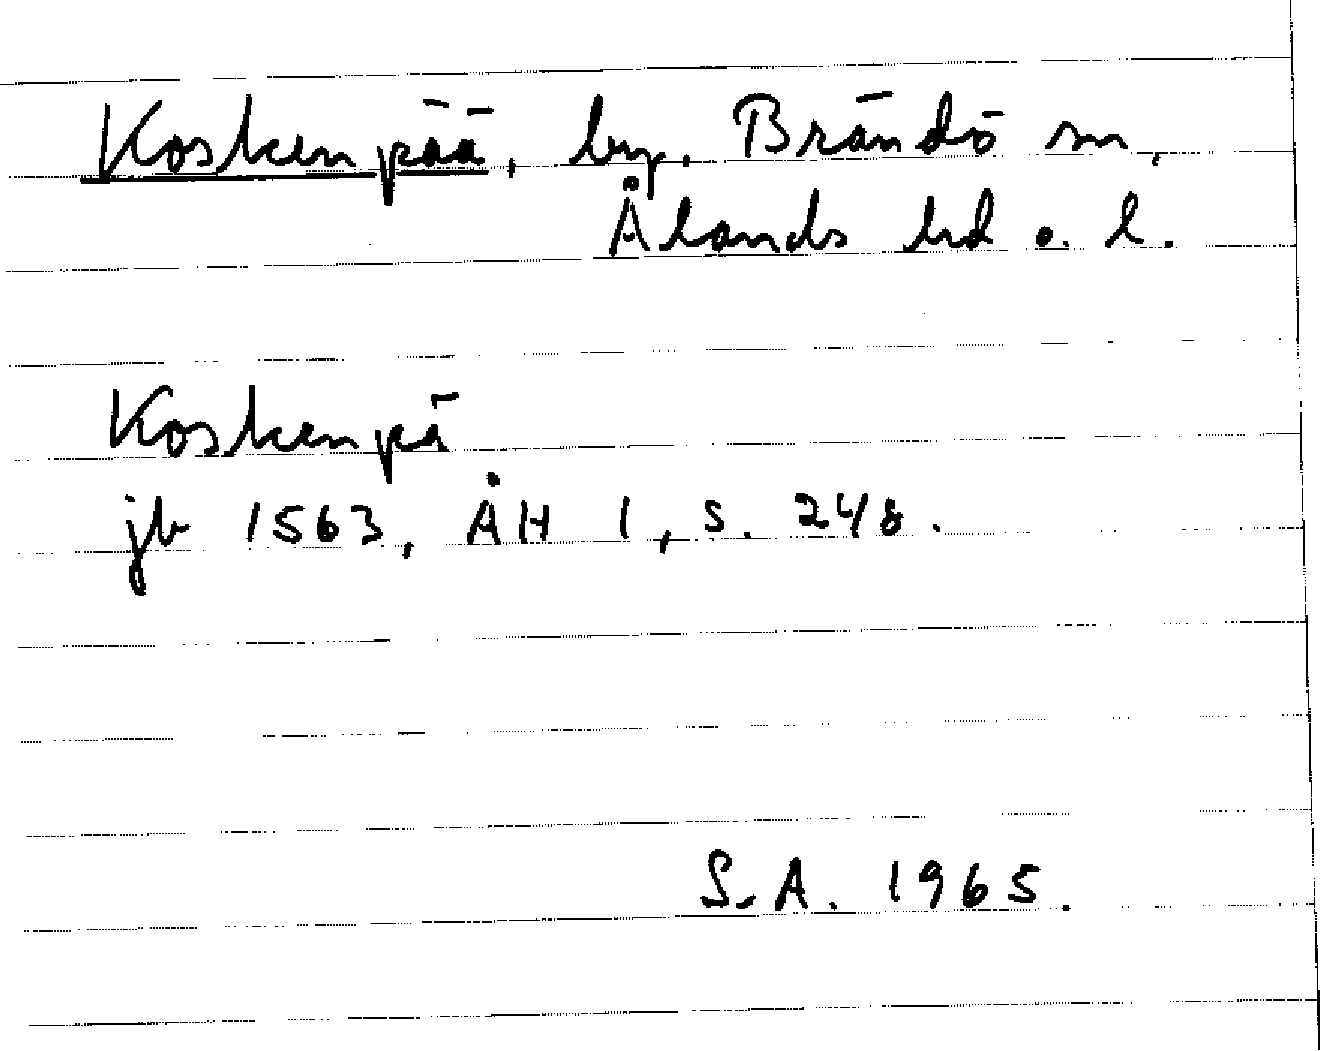 Koskenpää, by, Brändö sn,
Ålands hd o. l.
Koskenpä
jb 1563, ÅH 1, s. 248.
S.A. 1965.